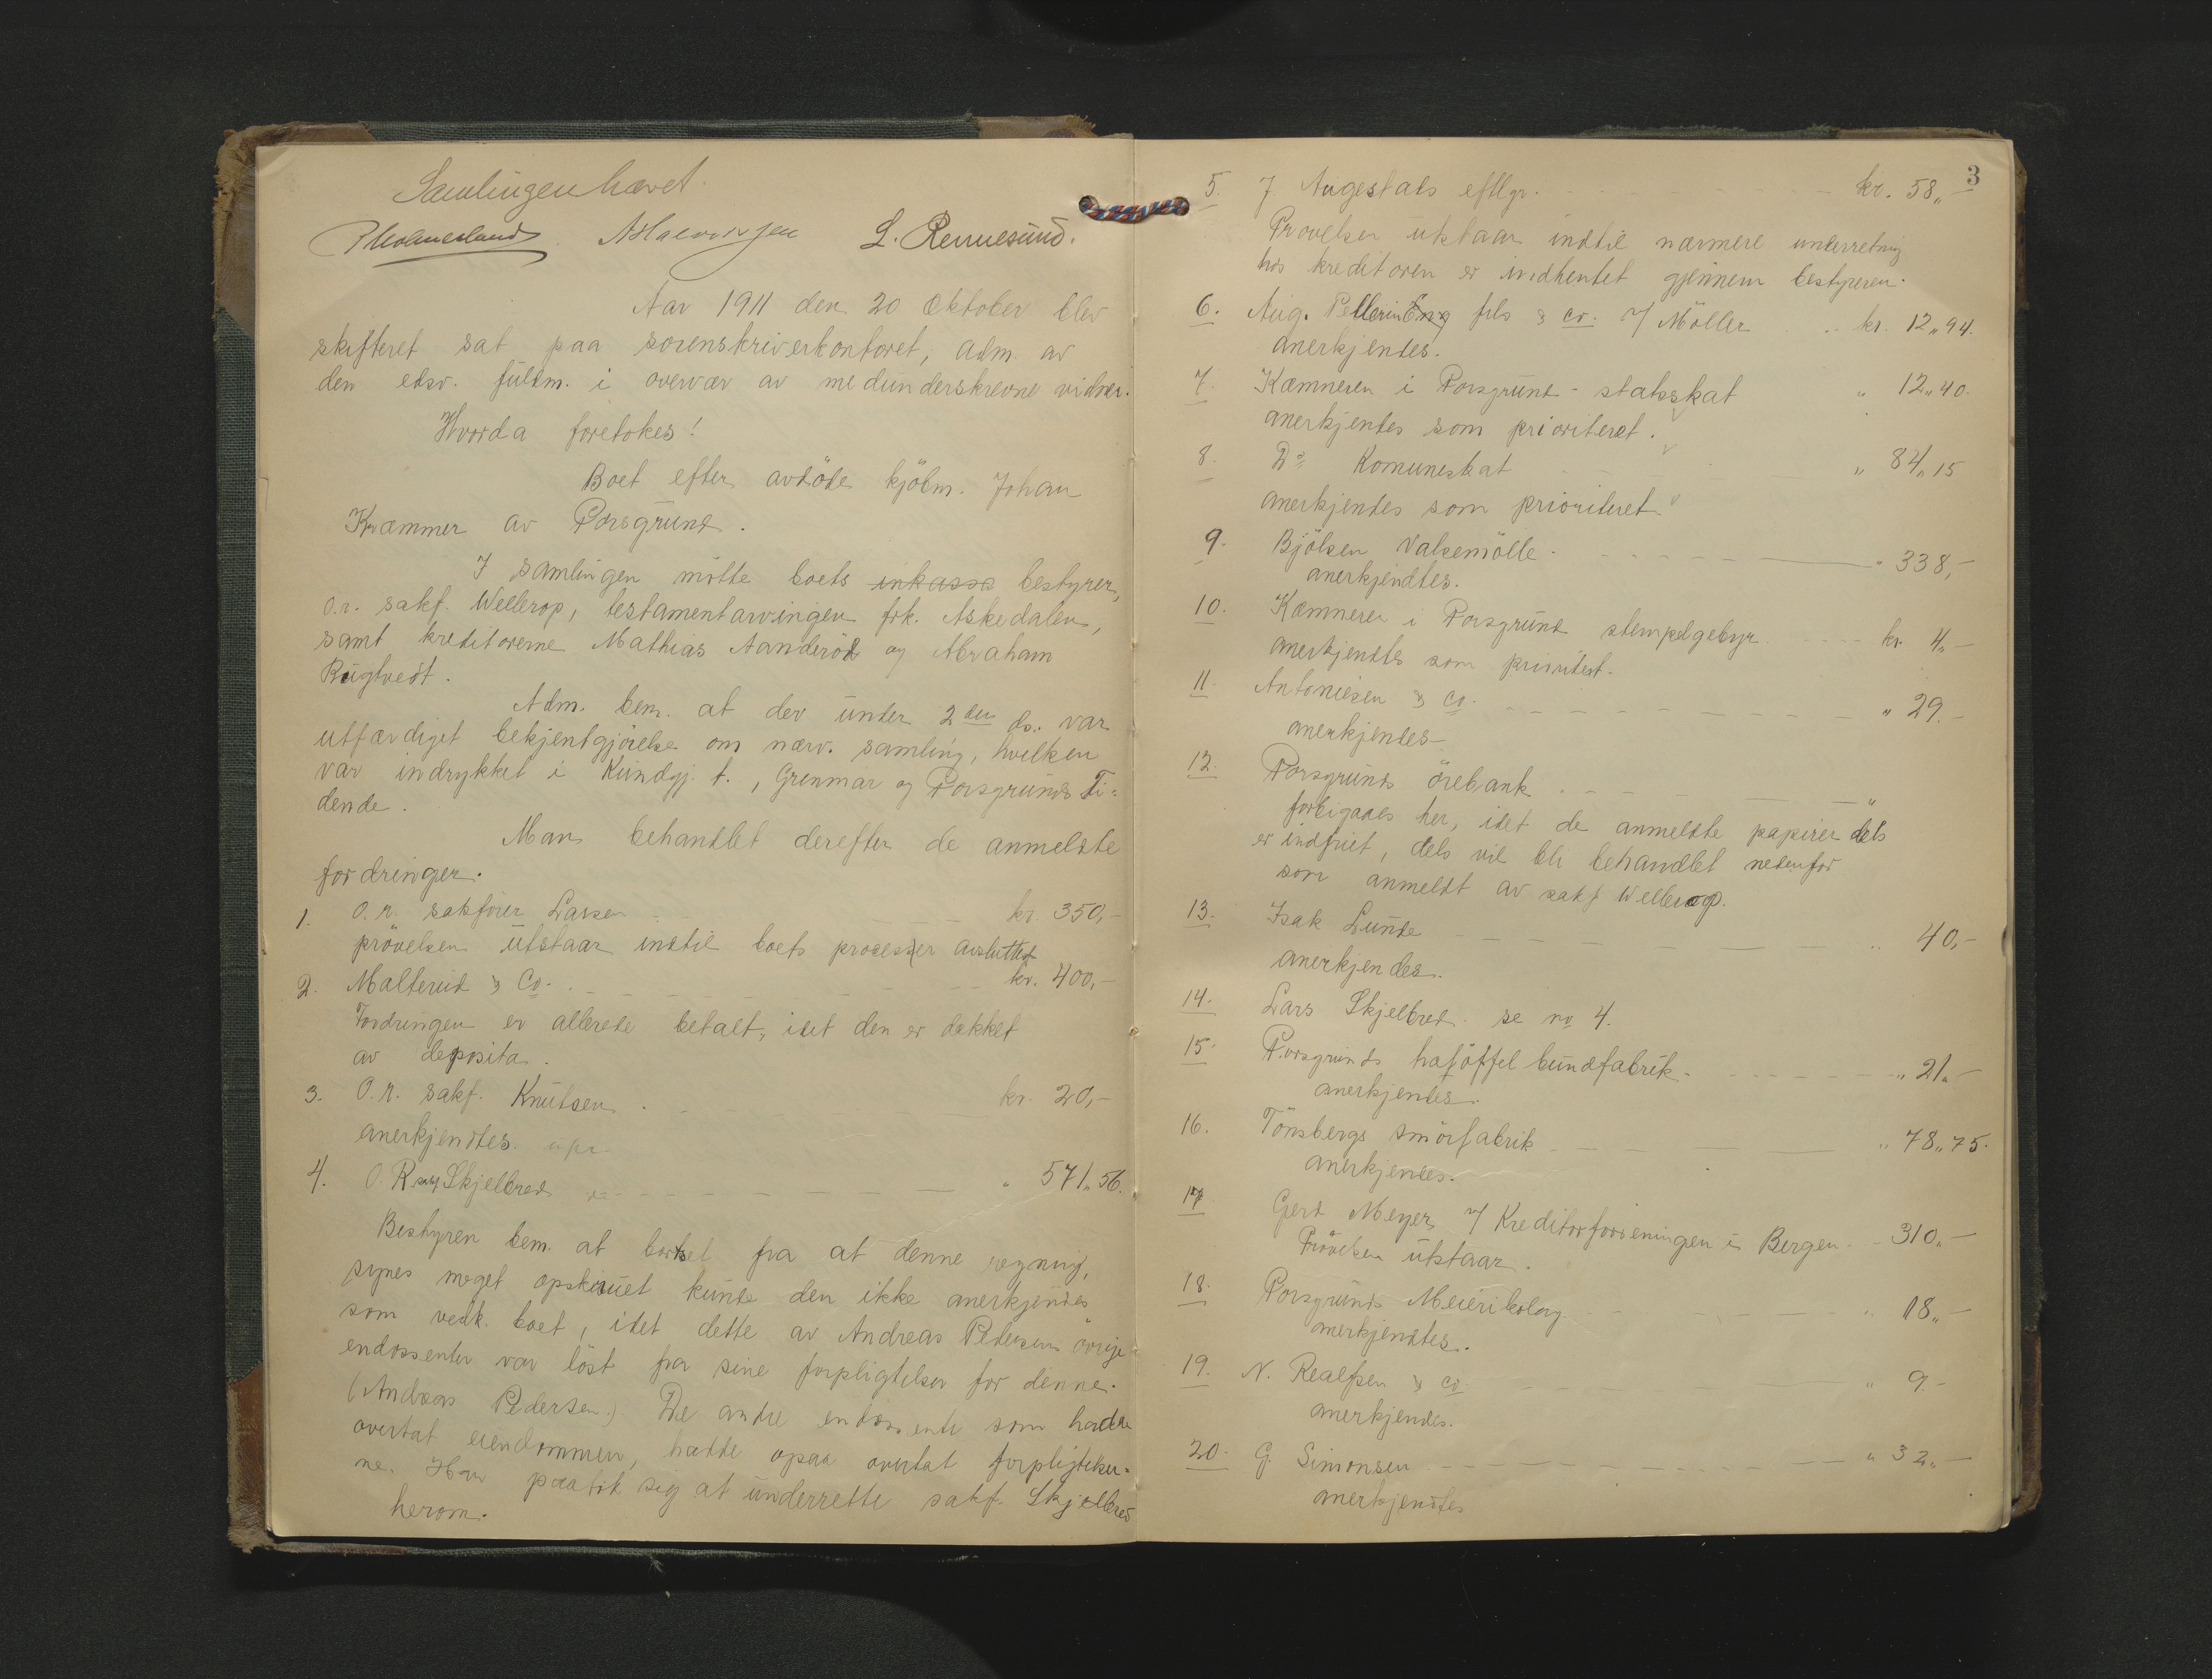 Samlingen hævet.
P Holmesland A Halvorsen L. Rennesund.
Aar 1911 den 20 Oktober blev
skifteret sat paa sorenskriverkontoret, adm. av
den edsv. fuldm. i overvær av medunderskrevne vidner.
Hvorda foretokes!
Boet efter avdöde kjöbm. Johan
Kræmmer av Porsgrund.
I samlingen mötte boets inkasso bestyrer,
o.r. sakf. Wellerop, testamentarvingen frk. Askedalen,
samt kreditorerne Mathias Aanderöd og Abraham
Rugtvedt.
Adm. bem. at der under 2den ds. var
utfærdiget bekjentgjörelse om nærv. samling, hvilken
var indrykket i Kundgj. t., Grenmar og Porsgrunds Ti=
dende.
Man behandlet derefter de anmeldte
fordringer.
1. O. r. sakförer Lassen kr. 350,-
prövelsen utstaar indtil boets processer avsluttet
2. Malterud & Co. kr. 400,-
Fordringen er allerede betalt, idet den er dækket
av deposita.
3. O. r. sakf. Knutsen. kr. 20,-
anerkjendtes.
4. O. R sakf Skjelbred " 571,56.
Bestyren bem. at bortset fra at denne regning,
synes meget opskruet kunde den ikke anerkjendes
som vedk. boet, idet dette av Andreas Pedersens övrige
endossenter var löst fra sine forpligtelser for denne.
(Andreas Pedersen.) De andre endossenter som hadde
overtat eiendommen, hadde ogsaa overtat forpligtelser=
ne. Han paatok sig at underrette sakf. Skjelbred
herom.
3
5. J. Augestads eftlgr. kr. 58,-
Prövelsen utstaar indtil nærmere underretning
hos kreditoren er indhentet gjennem bestyreren.
6. Aug. Pellerin Eng fils & co. v/ Möller kr. 12,94.
anerkjendes.
7. Kæmneren i Porsgrund - statsskat " 12,40.
anerkjendes som prioriteret.
8. Do Komuneskat " 84,15
anerkjendes som prioriteret.
9. Bjölsen Valsemölle. " 338,-
anerkjendtes.
10. Kæmneren i Porsgrund stempelgebyr kr. 4,-
anerkjendtes som prioritert.
11. Antonisen & co. " 29.-
anerkjendes
12. Porsgrunds örebank. "
forbigaaes her, idet de anmeldte papirer dels
er indfriet, dels vil bli behandlet nedenfor
som anmeldt av sakf Wellerop.
13. Isak Lunde " 40,-
anerkjendes.
14. Lars Skjelbred. se no 4.
15. Porsgrunds trætöffel bundfabrik. " 21,-
anerkjendes.
16. Tönsbergs smörfabrik " 78,75.
anerkjendes.
17 Gerd Meyer v/ Kreditorforeningen i Bergen 310,-
Prövelsen utstaar.
18. Porsgrunds Meieribolag " 18,-
anerkjendtes.
19. N. Realfsen & co. " 9.-
anerkjendes.
20. G. Simonsen " 32,-
anerkjendtes